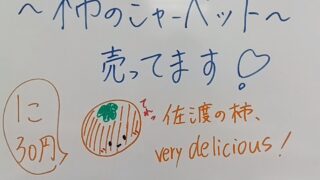 ～柿のシャーベット～
売ってます♡
1こ
30円
てれっ
佐渡の柿、
very delicious!